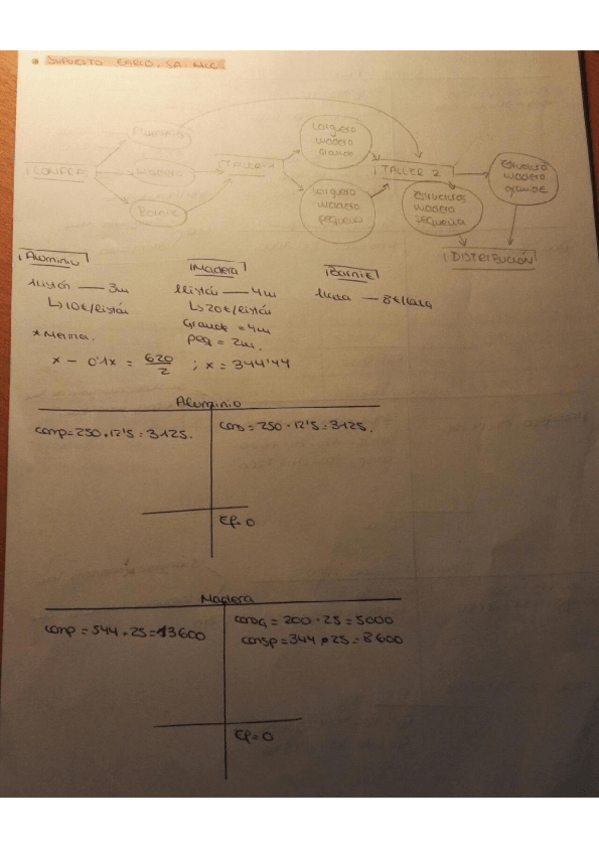 SUPUESTO EARCO, SA. MLC
Aluminio
Madera
Barniz
COMPRAS
TALLER 1
Larguero madera grande
Larguero madera pequeño
TALLER 2
Escalera madera grande
madera pequeña
DISTRIBUCIÓN
Aluminio
Madera
Barniz
1 listón — 3m
↳ 10€/listón
1 listón — 4m
↳ 20€/listón
Grande = 4m
peq = 2m.
8€/lata
* Merma.
x - 0'1x = 620/2 ; x = 344'44
Aluminio
comp = 250 · 12'5 = 3125.
cons = 250 · 12'5 = 3125.
Ef = 0
Madera
comp = 544 · 25 = 13600
consG = 200 · 25 = 5000
consp = 344 · 25 = 8600
Ef = 0